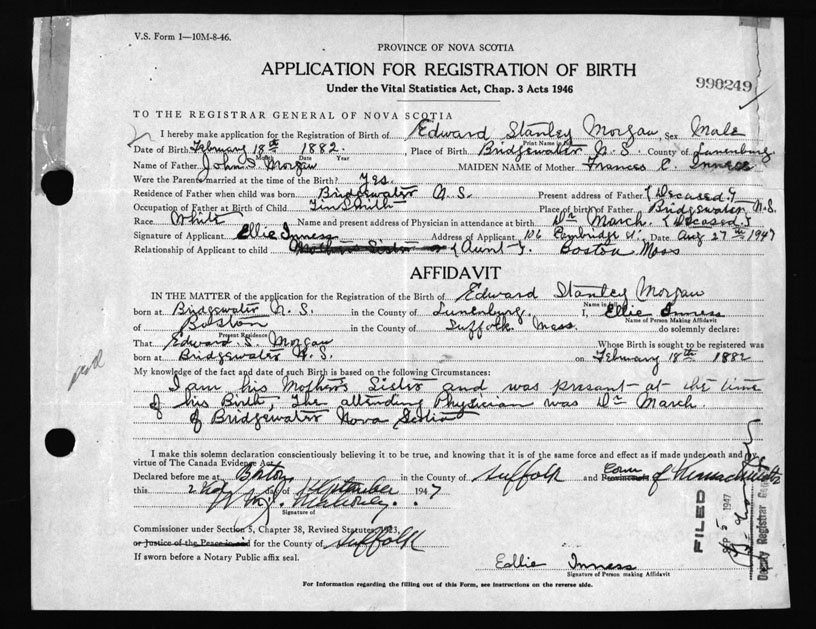 V.S. Form 1—10M-8-46.
PROVINCE OF NOVA SCOTIA
APPLICATION FOR REGISTRATION OF BIRTH
Under the Vital Statistics Act, Chap. 3 Acts 1946
990249
TO THE REGISTRAR GENERAL OF NOVA SCOTIA
I hereby make application for the Registration of Birth of Edward Stanley Morgan, Sex Male
Print Name in Full
Date of Birth February 18th 1882. Place of Birth Bridgewater N.S. County of Lunenburg
Month Date Year
Name of Father John S Morgan MAIDEN NAME of Mother Frances C. Inness
Were the Parents married at the time of the Birth? Yes.
Residence of Father when child was born Bridgewater N.S. Present address of Father (Deceased)
Occupation of Father at Birth of Child Tin Smith Place of birth of Father Bridgewater N.S.
Race White Name and present address of Physician in attendance at birth Dr March. (Deceased)
Signature of Applicant Ellie Inness Address of Applicant 106 Pembridge St. Date Aug 27th 1947
Relationship of Applicant to child Mother's Sister or (Aunt) Boston Mass
AFFIDAVIT
IN THE MATTER of the application for the Registration of the Birth of Edward Stanley Morgan
Name in Full
born at Bridgewater N.S. in the County of Lunenburg. I, Ellie Inness
Name of Person Making Affidavit
of Boston in the County of Suffolk Mass. do solemnly declare:
Present Residence
That Edward S. Morgan Whose Birth is sought to be registered was
born at Bridgewater N.S. on February 18th 1882
My knowledge of the fact and date of such Birth is based on the following Circumstances:
I am his Mother's Sister and was present at the time
of his Birth, The attending Physician was Dr March.
of Bridgewater Nova Scotia
I make this solemn declaration conscientiously believing it to be true, and knowing that it is of the same force and effect as if made under oath and by
virtue of The Canada Evidence Act.
Declared before me at Boston in the County of Suffolk and Province Com of Massachusetts
this 2nd day of September 1947
Signature of
Commissioner under Section 5, Chapter 38, Revised Statutes, 1923,
or Justice of the Peace in and for the County of Suffolk
If sworn before a Notary Public affix seal.
Edlie Inness
Signature of Person making Affidavit
FILED
SEP 5 1947
Deputy Registrar
For Information regarding the filling out of this Form, see instructions on the reverse side.